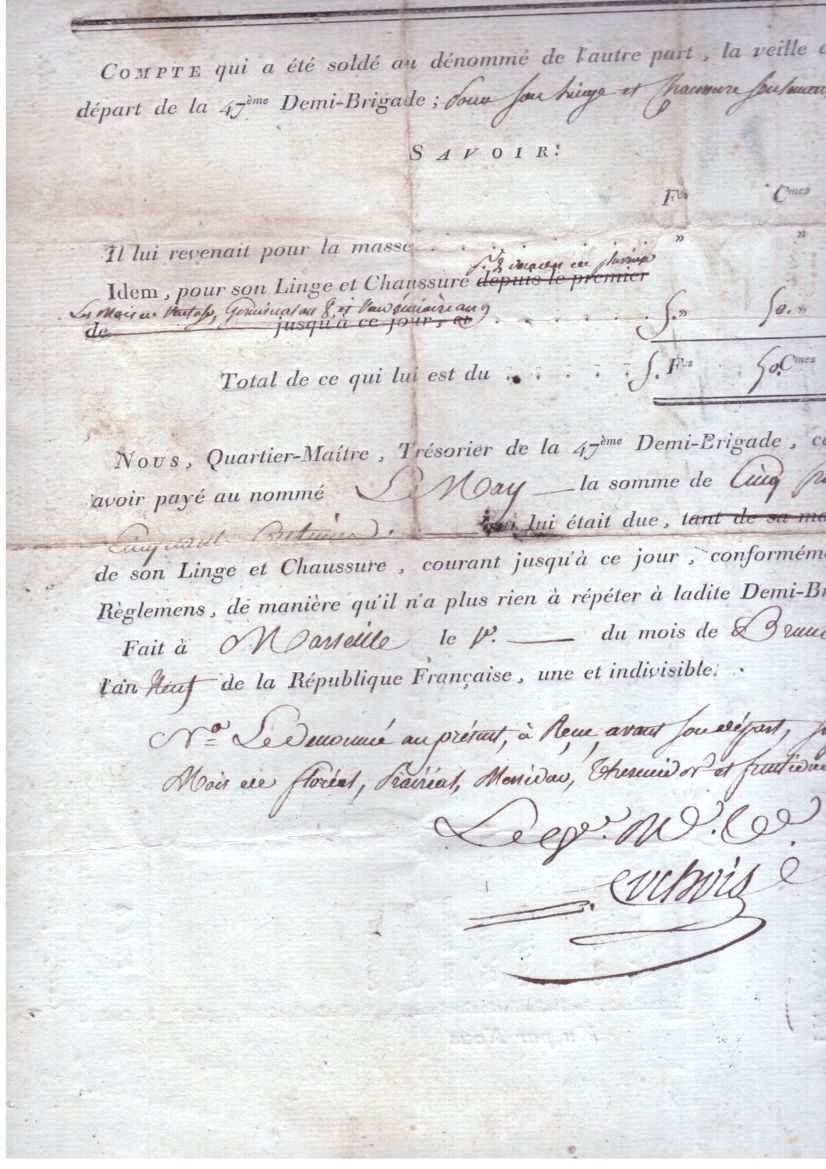 COMPTE qui a été soldé au dénommé de l'autre part, la veille d
départ de la 47ème Demi-Brigade; pour son linge et Chaussure seulement
SAVOIR:
Fcs Cmes
Il lui revenait pour la masse . . . . . . . . . . " "
Idem, pour son Linge et Chaussure depuis le premier
Les Mois de Ventose, Germinal an 8. et Vendémiaire an 9
de jusqu'à ce jour, et . . . . . . 5." 50."
Total de ce qui lui est du . . . . . . 5. Fcs 50. Cmes
NOUS, Quartier-Maître, Trésorier de la 47ème Demi-Brigade, ce
avoir payé au nommé Le May la somme de Cinq
Cinquante Centimes. qui lui était due, tant de sa ma
de son Linge et Chaussure, courant jusqu'à ce jour, conformém
Règlemens, de manière qu'il n'a plus rien à répéter à ladite Demi-Br
Fait à Marseille le 1er. du mois de Brum
l'an Neuf de la République Française, une et indivisible.
Na. Le Dénommé au présent, à Reçu, avant son départ,
Mois de floréal, Prairéal, Messidor, Thermidor et fructidor
Le qr. Me.